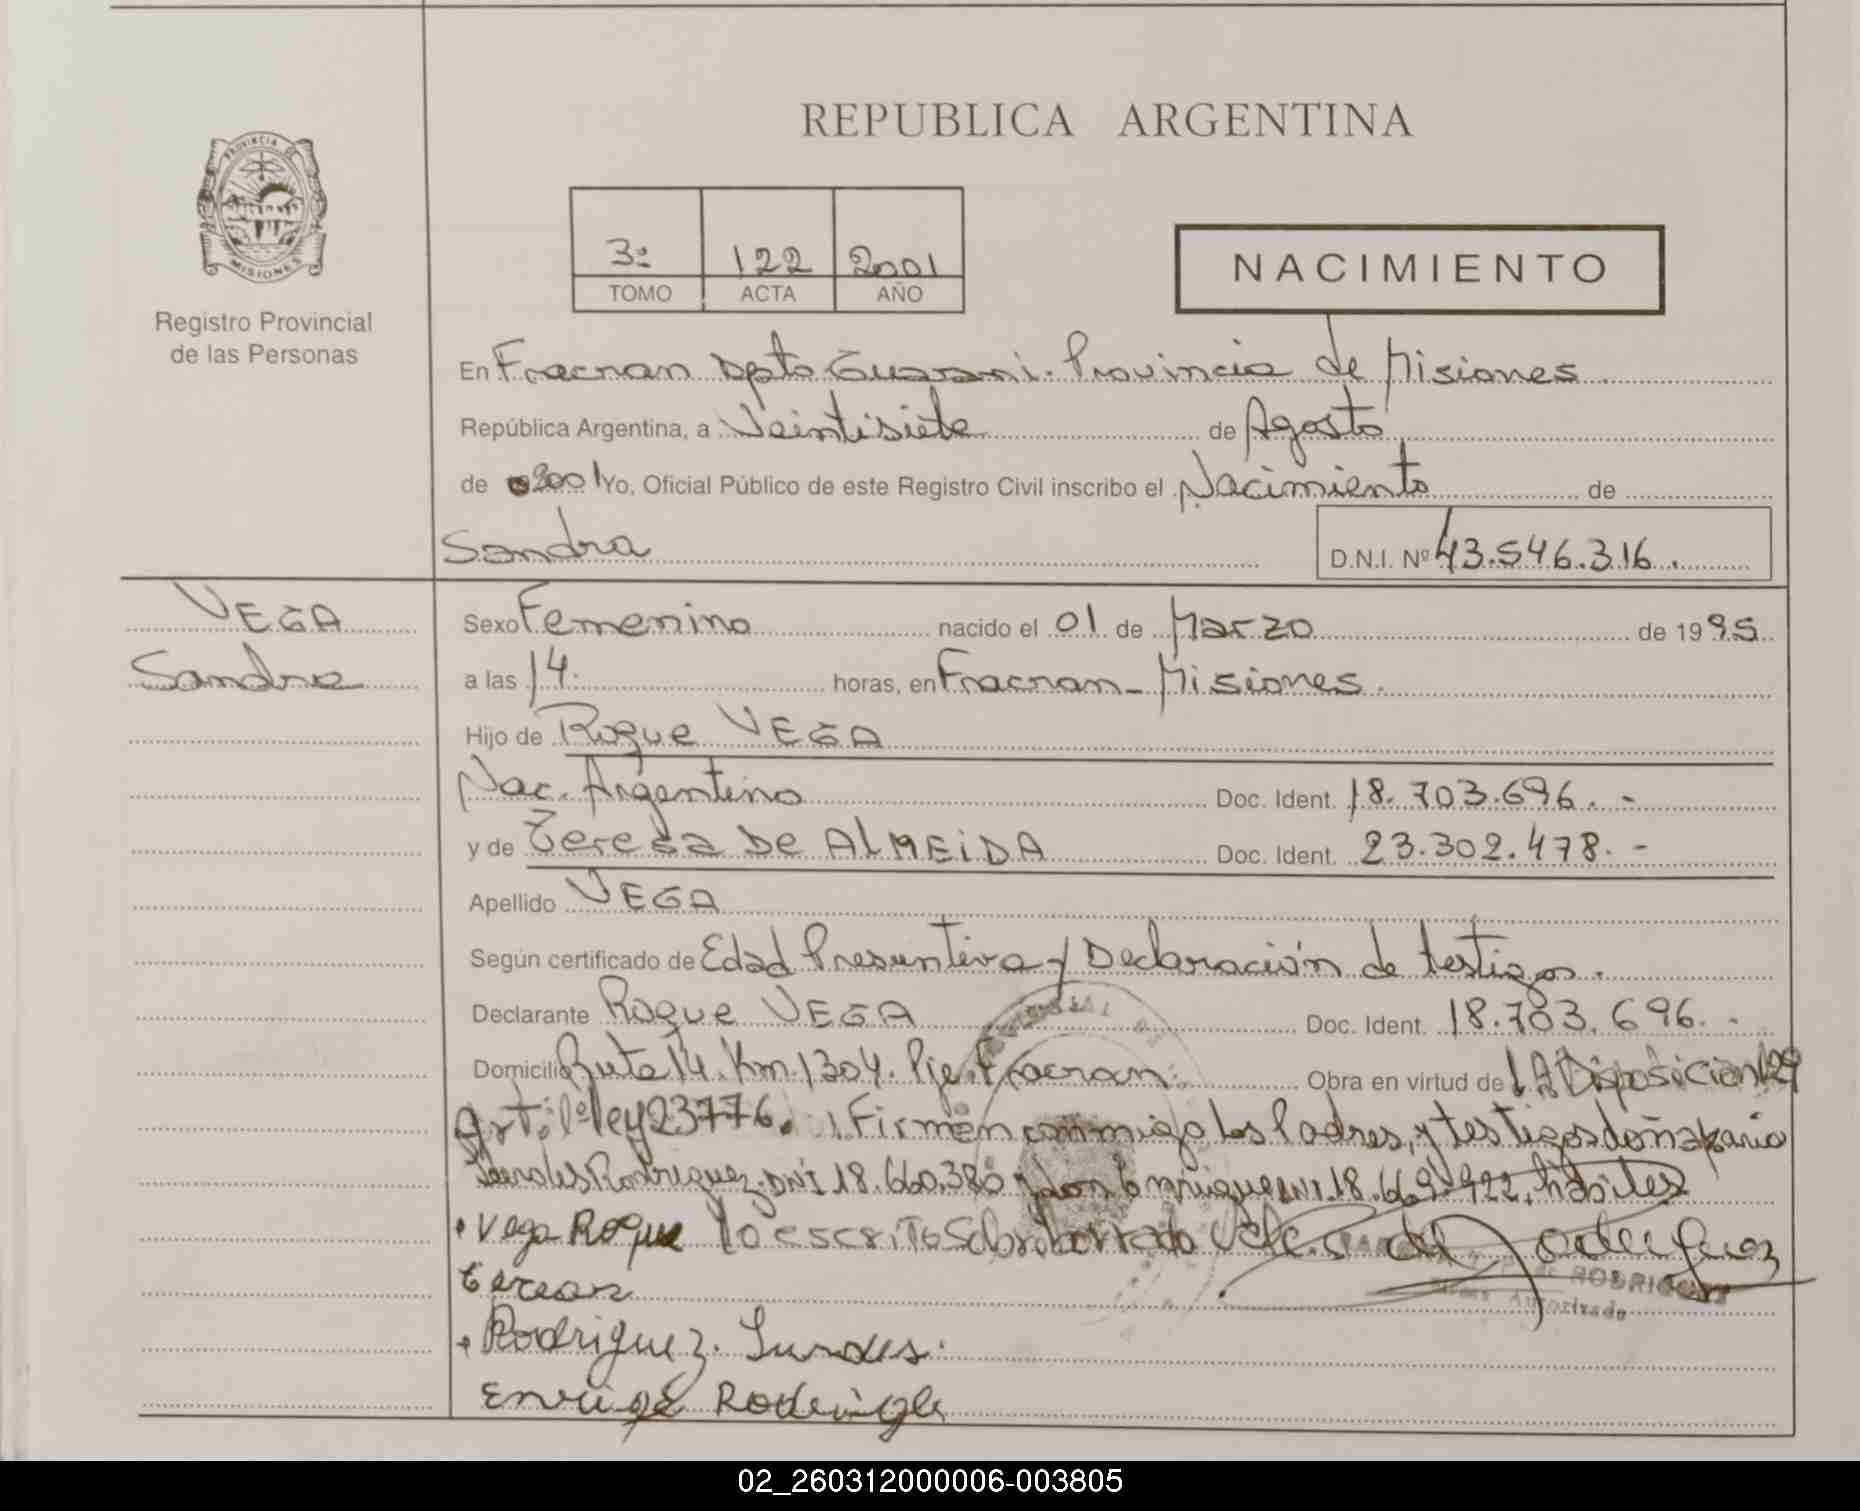 REPUBLICA ARGENTINA
PROVINCIA DE
MISIONES
Registro Provincial
de las Personas
3º 122 2001
TOMO ACTA AÑO
NACIMIENTO
En Fracran Dpto Guarani. Provincia de Misiones
República Argentina, a Veintisiete de Agosto
de 2001 Yo, Oficial Público de este Registro Civil inscribo el Nacimiento de
Sandra D.N.I. Nº 43.546.316.
VEGA
Sandra
Sexo Femenino nacido el 01 de Marzo de 1995
a las 14. horas, en Fracran - Misiones.
Hijo de Roque VEGA
Nac. Argentino Doc. Ident. 18.703.696. -
y de Teresa De ALMEiDA Doc. Ident. 23.302.478. -
Apellido VEGA
Según certificado de Edad Presuntiva y Declaración de testigos.
Declarante Roque VEGA Doc. Ident. 18.703.696. -
Domicilio Ruta 14. Km. 1304. Pje. Fracran. Obra en virtud de LA Disposicion 129
Art: 1º ley 23776. Firman conmigo los Padres, y testigos doña
Rodriguez. DNI 18.660.380 y don Enrique DNI. 18.669.922,
Vega Roque lo escrito Sobre borrado Vale.
teresa
RODRIGUEZ
Autorizado
Rodriguez.
Enriqe
02_260312000006-003805